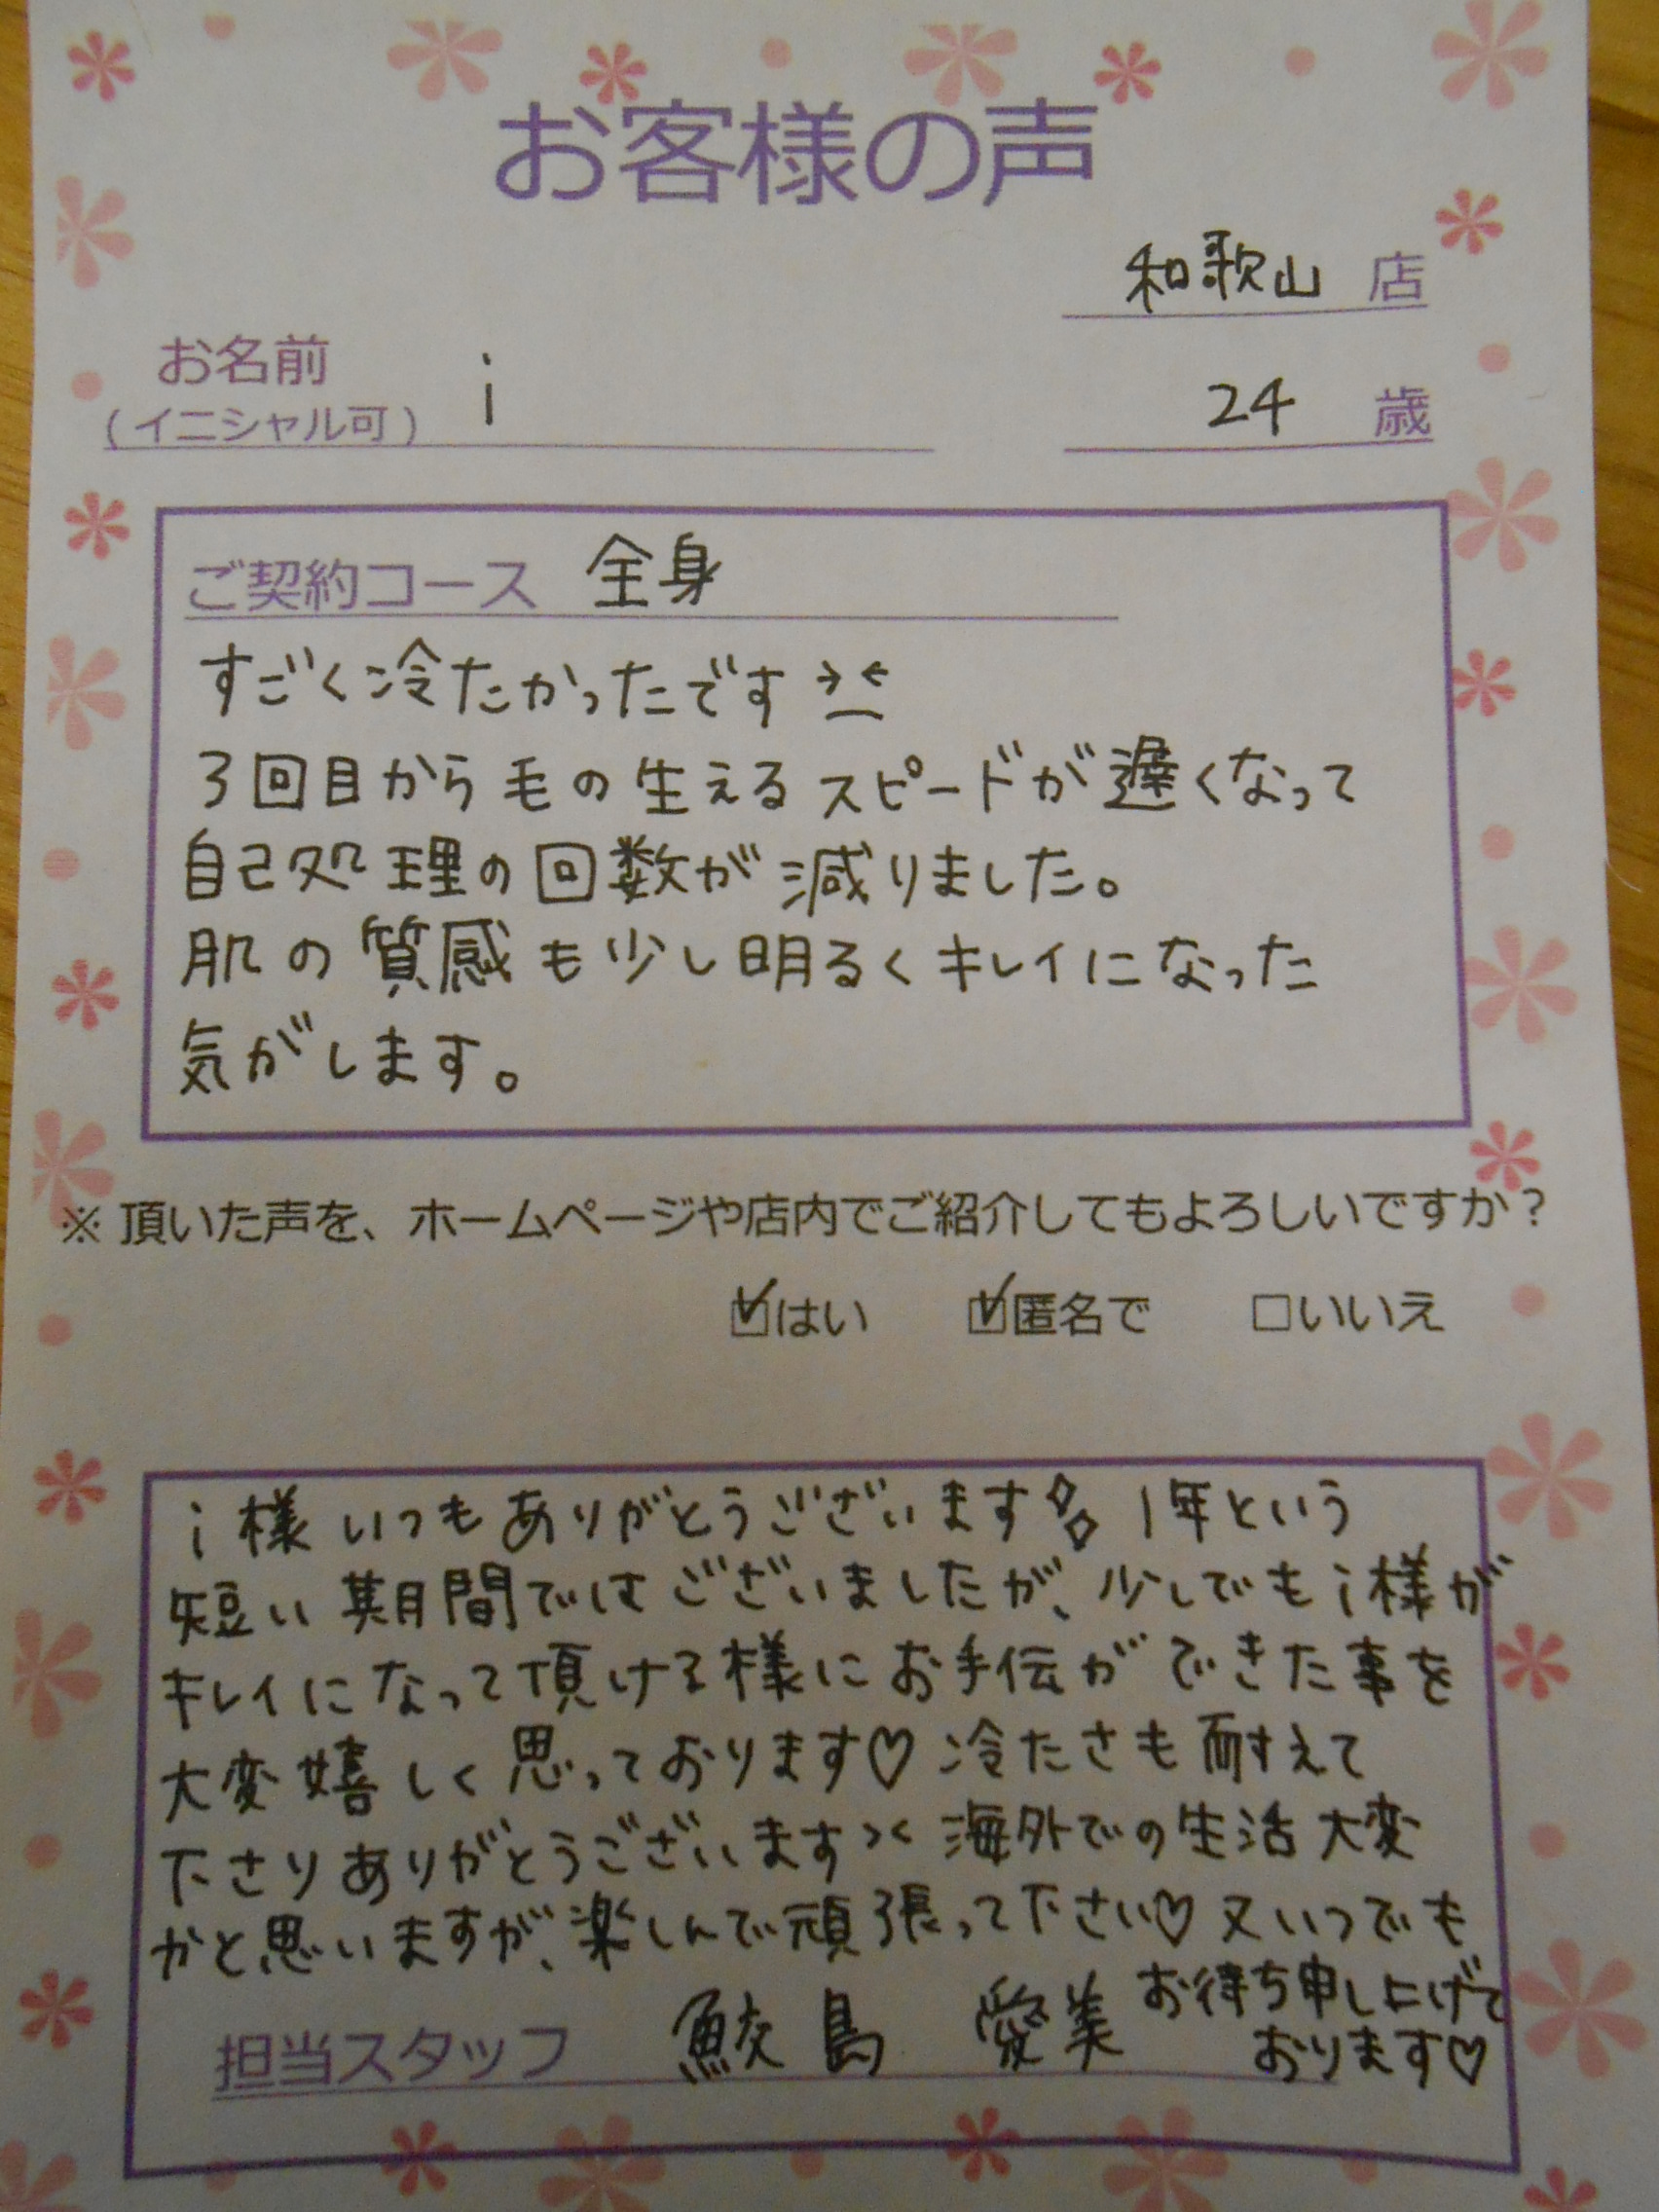 お客様の声
和歌山 店
お名前
(イニシャル可) i
24 歳
ご契約コース 全身
すごく冷たかったです ><
3回目から毛の生えるスピードが遅くなって
自己処理の回数が減りました。
肌の質感も少し明るくキレイになった
気がします。
※ 頂いた声を、ホームページや店内でご紹介してもよろしいですか？
☑はい ☑匿名で □いいえ
i様いつもありがとうございます 1年という
短い期間ではございましたが、少しでもi様が
キレイになって頂ける様にお手伝ができた事を
大変嬉しく思っております♡ 冷たさも耐えて
下さりありがとうございます>< 海外での生活大変
かと思いますが、楽しんで頑張って下さい♡ 又いつでも
お待ち申し上げて
おります♡
担当スタッフ 鮫島 愛美